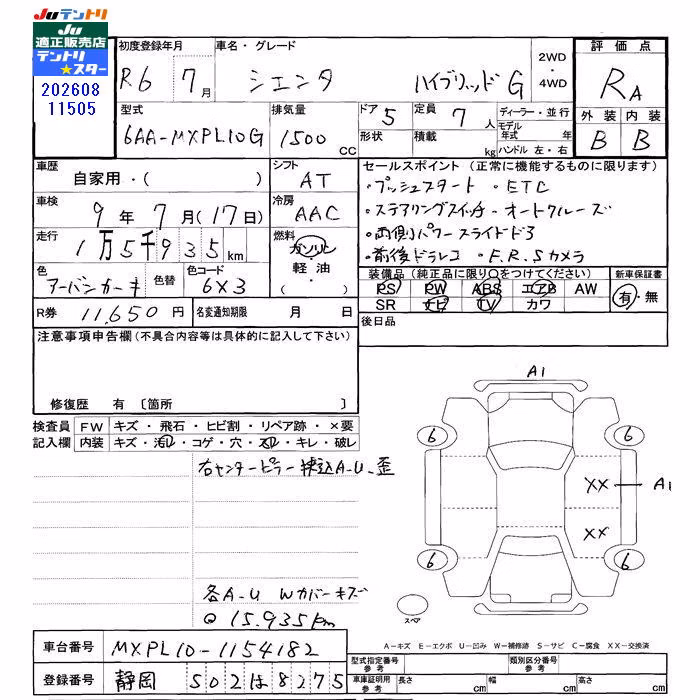 Juテントリ
Ju
適正販売店
テントリ
★スター
202608
11505
初度登録年月
R6 7月
車名・グレード
シエンタ ハイブリッド G
2WD
・
4WD
評価点
RA
外装 内装
B B
型式
6AA-MXPL10G
排気量
1500 CC
ドア 5
形状
定員 7 人
積載 kg
ディーラー・並行
モデル年式 年
ハンドル 左・右
車歴
自家用・( )
シフト
AT
車検
9年 7月(17日)
冷房
AAC
走行
1万5千935km
燃料
ガソリン
軽油
・( )
色
アーバンカーキ
色替
色コード
6X3
R券 11,650 円
名変通知期限 月 日
セールスポイント(正常に機能するものに限ります)
・プッシュスタート ・ETC
・ステアリングスイッチ・オートクルーズ
・両側パワースライドドア
・前後ドラレコ ・F.R.Sカメラ
装備品(純正品に限り○をつけてください)
PS PW ABS エアB AW
SR ナビ TV カワ
新車保証書
有・無
後日品
注意事項申告欄(不具合内容等は具体的に記入して下さい)
修復歴 有 〔箇所 〕
検査員記入欄
FW キズ・飛石・ヒビ割・リペア跡・×要
内装 キズ・汚レ・コゲ・穴・スレ・キレ・破レ
右センターピラー 押込A-U 歪
各A-U Wカバーキズ
@ 15.935km
A1
6 6
XX A1
XX
6 6
スペア
A-キズ E-エクボ U-凹み W-補修跡 S-サビ C-腐食 XX-交換済
車台番号 MXPL10-1154182
登録番号 静岡 502は8275
型式指定番号 参考
類別区分番号 参考
車庫証明用 参考
長さ cm
幅 cm
高さ cm